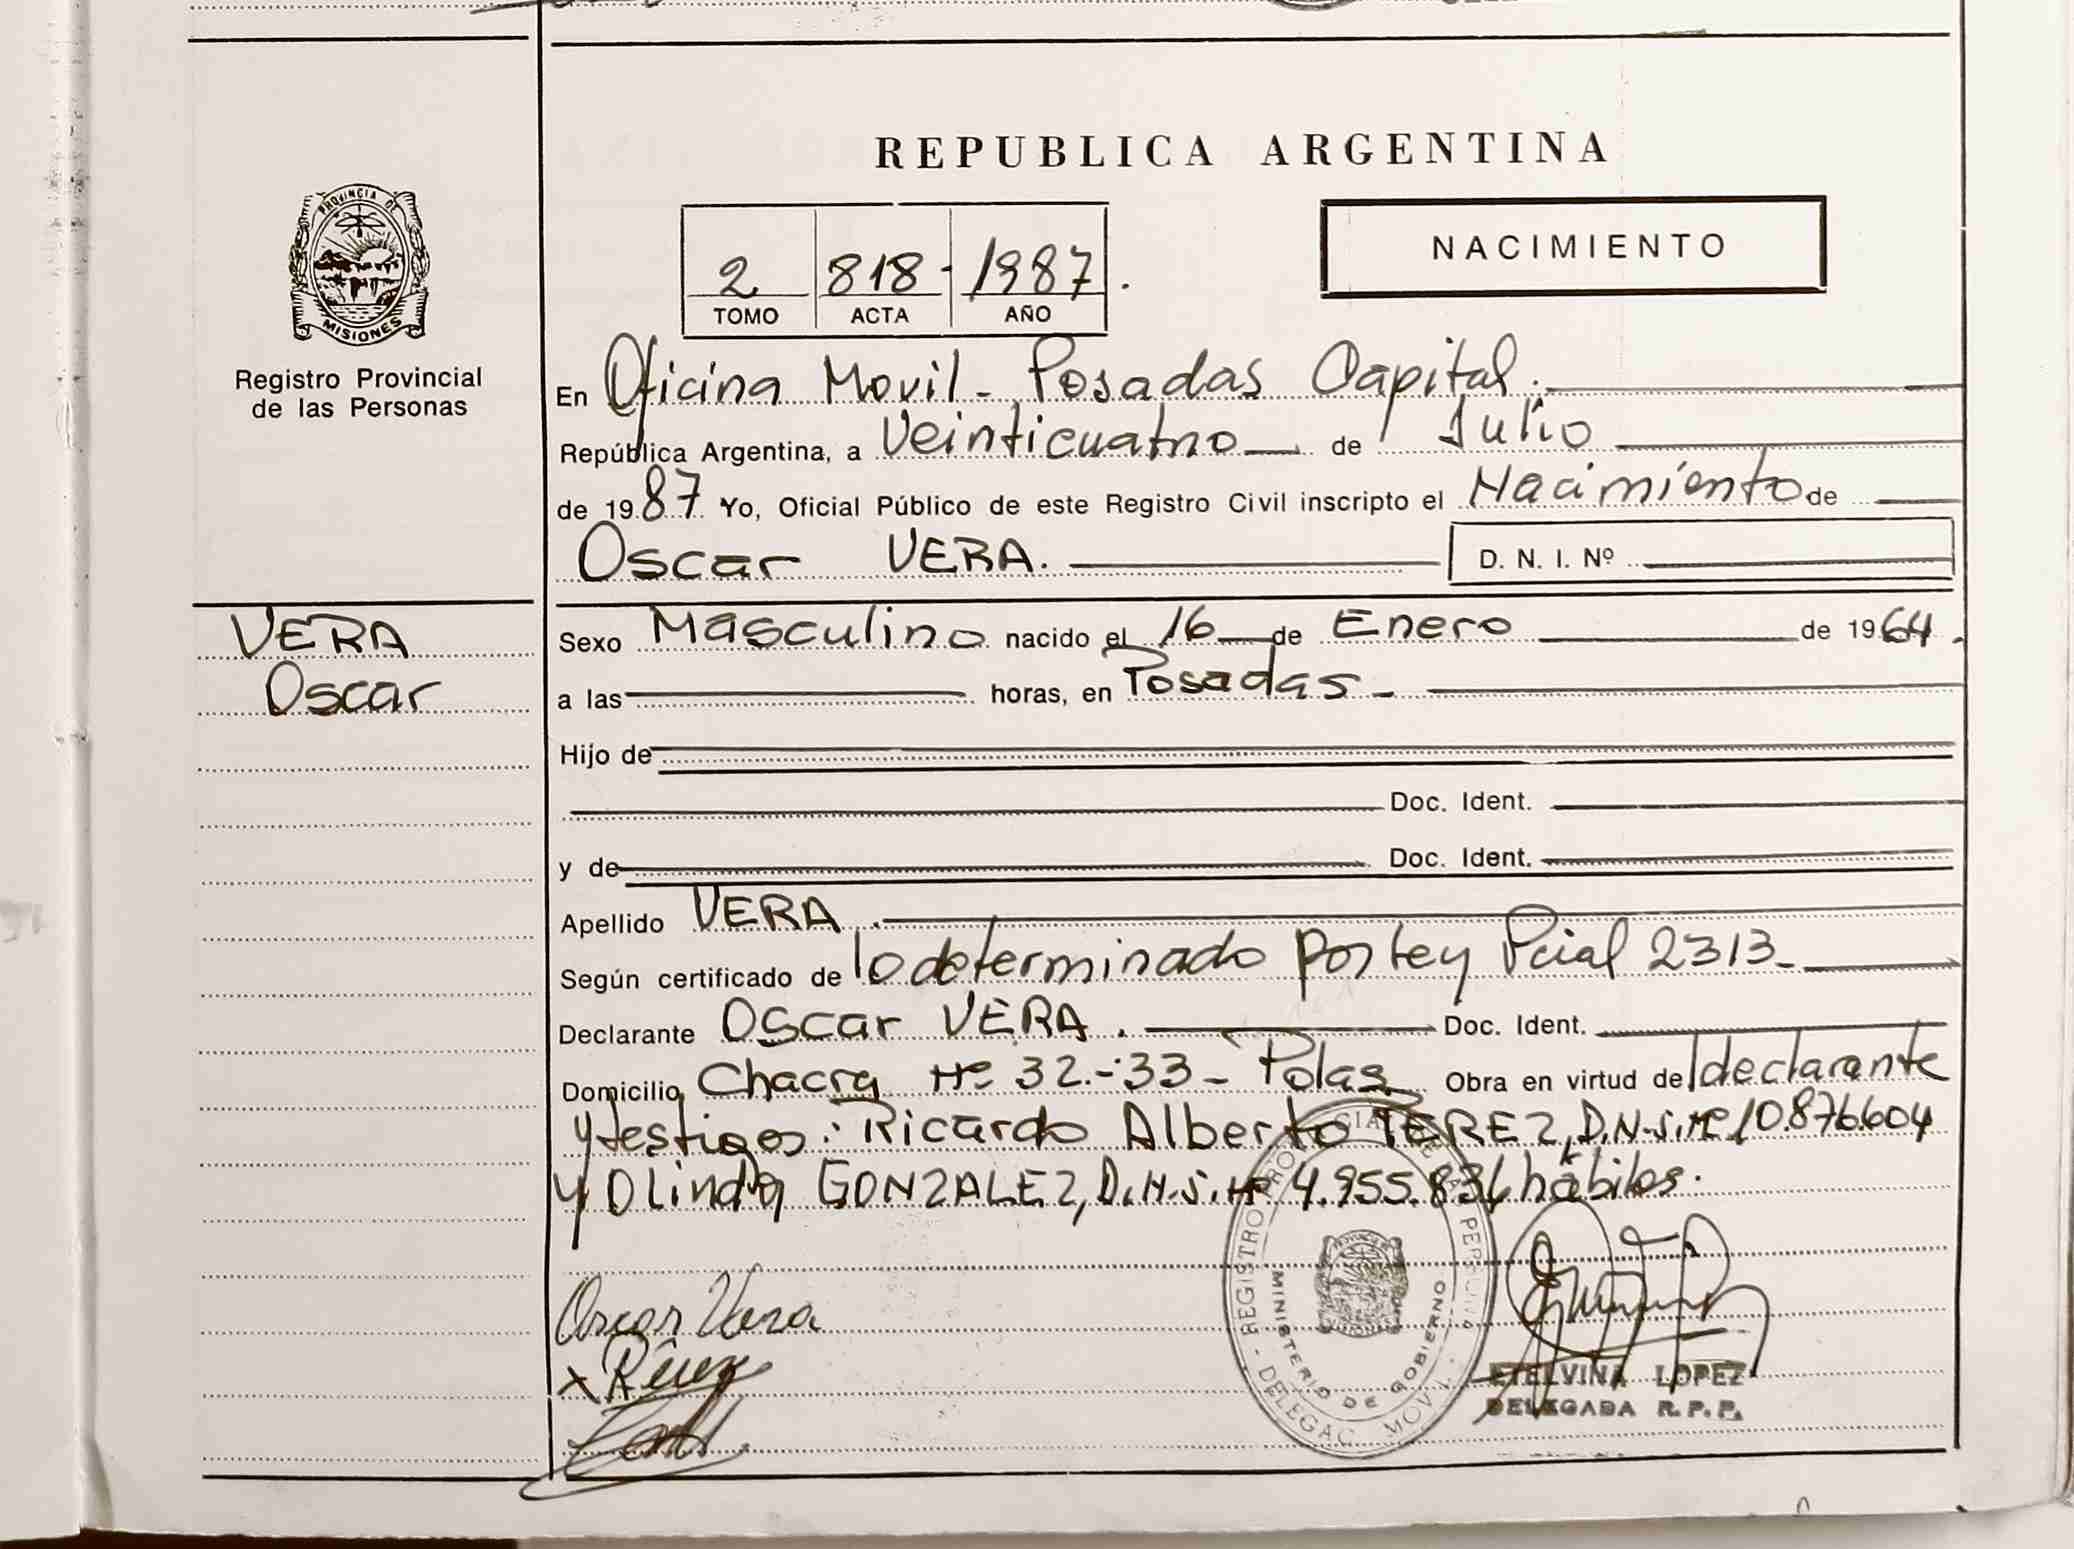 REPUBLICA ARGENTINA
NACIMIENTO
2 818 - 1987.
TOMO ACTA AÑO
PROVINCIA DE
MISIONES
Registro Provincial
de las Personas
En Oficina Movil - Posadas Capital.
República Argentina, a Veinticuatro de Julio
de 1987 Yo, Oficial Público de este Registro Civil inscripto el Nacimiento de
Oscar VERA. D. N. I. Nº
VERA
Oscar
Sexo Masculino nacido el 16 de Enero de 1964.
a las horas, en Posadas -
Hijo de
Doc. Ident.
y de Doc. Ident.
Apellido VERA.
Según certificado de lo determinado por Ley Pcial 2313-
Declarante Oscar VERA. Doc. Ident.
Domicilio Chacra Nº 32.-33- Pdas Obra en virtud de declarante
y testigos: Ricardo Alberto PEREZ, D.N.I. Nº 10.876.604
y Olinda GONZALEZ, D.N.I. Nº 4.955.836 hábiles.
Oscar Vera
x Pérez
REGISTRO PROVINCIAL DE LAS PERSONAS
MINISTERIO DE GOBIERNO
- DELEGAC. MOVIL -
ETELVINA LOPEZ
DELEGADA R.P.P.